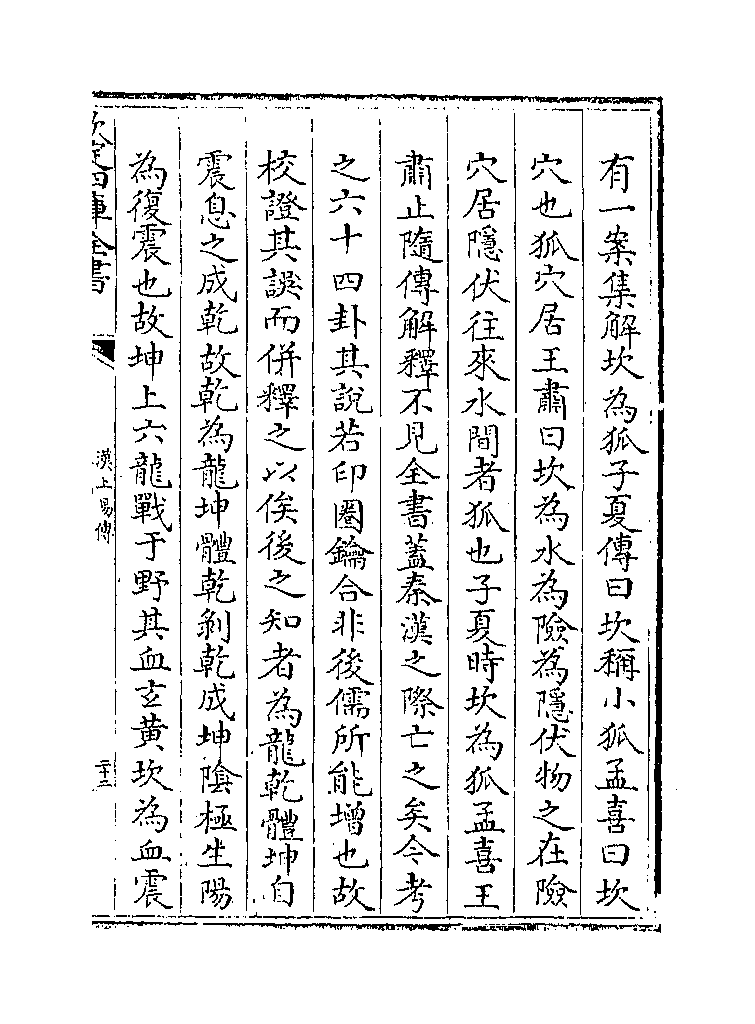 有一案集解坎為狐子夏傳曰坎稱小狐孟喜曰坎
穴也狐穴居王肅曰坎為水為險為隱伏物之在險
穴居隱伏往來水間者狐也子夏時坎為狐孟喜王
肅止隨傳解釋不見全書蓋秦漢之際亡之矣今考
之六十四卦其說若印圈鑰合非後儒所能增也故
校證其誤而併釋之以俟後之知者為龍乾體坤自
震息之成乾故乾為龍坤體乾剝乾成坤陰極生陽
為復震也故坤上六龍戰于野其血玄黃坎為血震
欽定四庫全書
漢上易傳
二十二